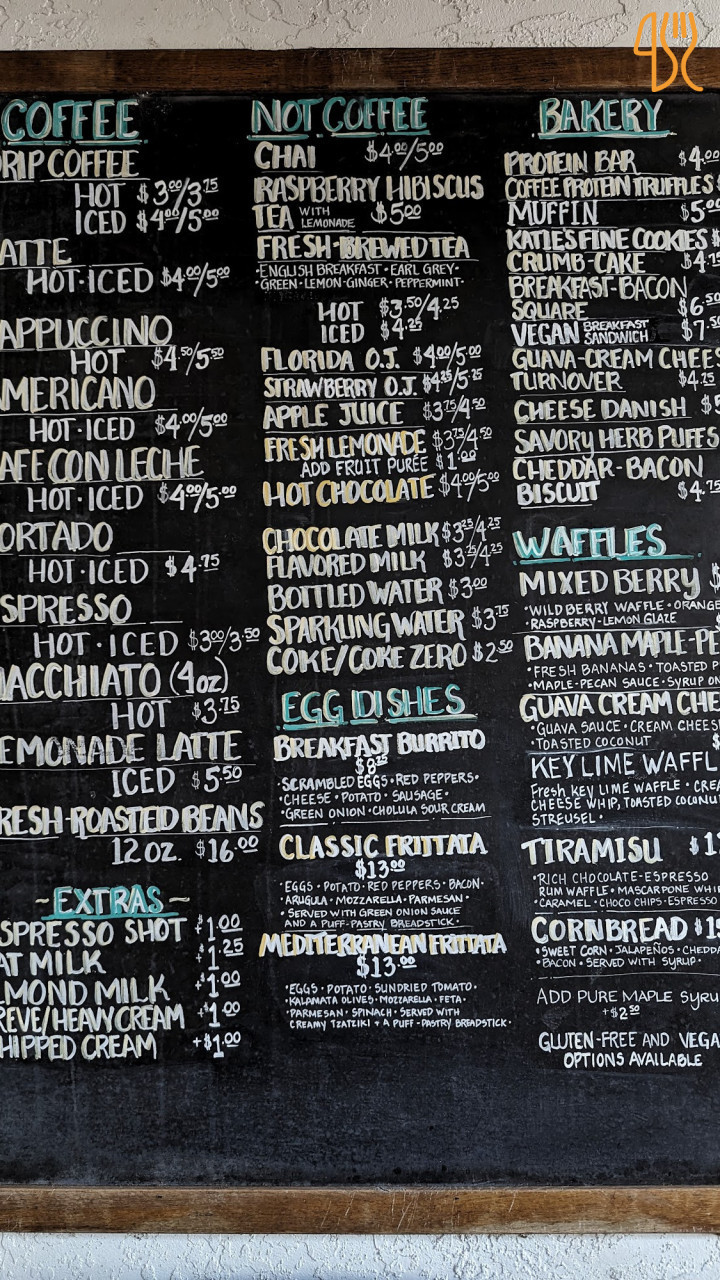 COFFEE
RIP COFFEE
HOT $3.00/3.75
ICED $4.00/5.00
ATTE
HOT·ICED $4.00/5.00
APPUCCINO
HOT $4.50/5.50
MERICANO
HOT·ICED $4.00/5.00
AFE CON LECHE
HOT·ICED $4.00/5.00
ORTADO
HOT·ICED $4.75
SPRESSO
HOT·ICED $3.00/3.50
ACCHIATO (4oz)
HOT $3.75
EMONADE LATTE
ICED $5.50
RESH-ROASTED BEANS
12 OZ. $16.00
~EXTRAS~
SPRESSO SHOT +1.00
AT MILK +1.25
LMOND MILK +1.00
REVE/HEAVY CREAM +1.00
HIPPED CREAM +$1.00
NOT COFFEE
CHAI $4.00/5.00
RASPBERRY HIBISCUS
TEA WITH LEMONADE $5.00
FRESH-BREWED TEA
·ENGLISH BREAKFAST·EARL GREY·
·GREEN·LEMON-GINGER·PEPPERMINT·
HOT $3.50/4.25
ICED $4.25
FLORIDA O.J. $4.00/5.00
STRAWBERRY O.J. $4.25/5.25
APPLE JUICE $3.75/4.50
FRESH LEMONADE $3.75/4.50
ADD FRUIT PURÉE $1.00
HOT CHOCOLATE $4.00/5.00
CHOCOLATE MILK $3.25/4.25
FLAVORED MILK $3.25/4.25
BOTTLED WATER $3.00
SPARKLING WATER $3.75
COKE/COKE ZERO $2.50
EGG DISHES
BREAKFAST BURRITO
$8.25
·SCRAMBLED EGGS·RED PEPPERS·
·CHEESE·POTATO·SAUSAGE·
·GREEN ONION·CHOLULA SOUR CREAM
CLASSIC FRITTATA
$13.00
·EGGS·POTATO·RED PEPPERS·BACON·
ARUGULA·MOZZARELLA·PARMESAN·
·SERVED WITH GREEN ONION SAUCE
AND A PUFF-PASTRY BREADSTICK·
MEDITERRANEAN FRITTATA
$13.00
·EGGS·POTATO·SUNDRIED TOMATO·
KALAMATA OLIVES·MOZZARELLA·FETA·
·PARMESAN·SPINACH·SERVED WITH
CREAMY TZATZIKI + A PUFF-PASTRY BREADSTICK·
BAKERY
PROTEIN BAR $4.00
COFFEE PROTEIN TRUFFLES $
MUFFIN $5.00
KATIE'S FINE COOKIES $
CRUMB-CAKE $4.75
BREAKFAST-BACON
SQUARE $6.50
VEGAN BREAKFAST SANDWICH $7.50
GUAVA-CREAM CHEES
TURNOVER $4.75
CHEESE DANISH $
SAVORY HERB PUFFS
CHEDDAR-BACON
BISCUIT $4.75
WAFFLES
MIXED BERRY $
·WILD BERRY WAFFLE·ORANGE
·RASPBERRY-LEMON GLAZE
BANANA MAPLE-PE
·FRESH BANANAS·TOASTED P
·MAPLE-PECAN SAUCE·SYRUP ON
GUAVA CREAM CHE
·GUAVA SAUCE·CREAM CHEES
·TOASTED COCONUT
KEY LIME WAFFL
Fresh KEY LIME WAFFLE·CREA
CHEESE WHIP, TOASTED COCONU
STREUSEL·
TIRAMISU $1
·RICH CHOCOLATE-ESPRESSO
RUM WAFFLE·MASCARPONE WHI
·CARAMEL·CHOCO CHIPS·ESPRESSO
CORNBREAD $1
·SWEET CORN·JALAPEÑOS·CHEDDA
·BACON·SERVED WITH SYRUP·
ADD PURE MAPLE Syru
+$2.50
GLUTEN-FREE AND VEGA
OPTIONS AVAILABLE